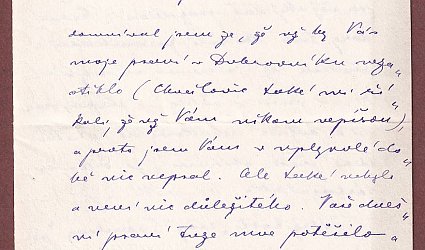 domníval jsem se, že už by Vás
moje psaní v Dubrovníku neza„
stihlo (Chvíli ovic také mi ří
kali, že už Vám nikam nepíšou),
a proto jsem Vám v uplynulé do„
bě nic nepsal. Ale také nebylo
a není nic důležitého. Vaše dneš„
ní psaní tuze mne potěšilo a